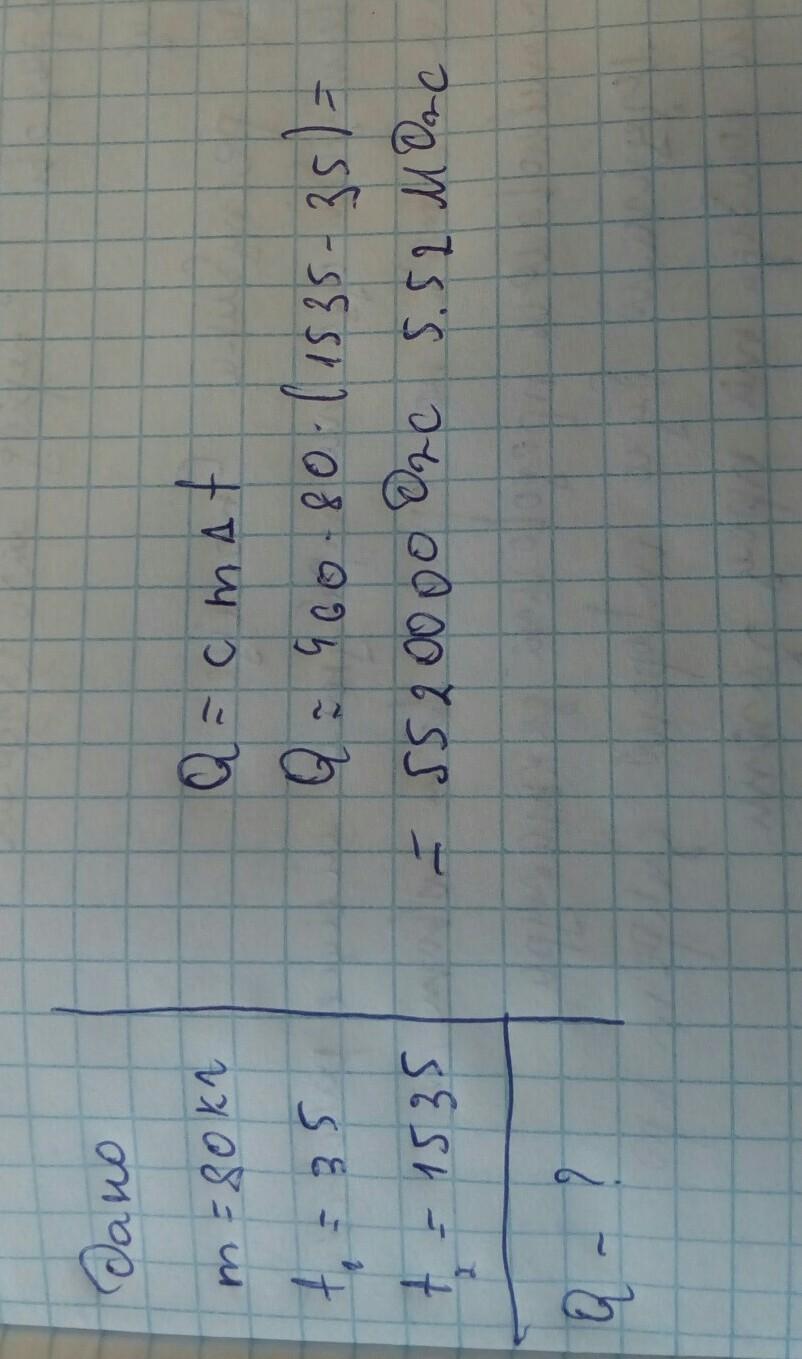 Дано
m = 80 кг
t₁ = 35
t₂ = 1535
Q - ?
Q = c m Δ t
Q = 460 · 80 · (1535 - 35) =
= 55200000 Дж 5.52 МДж